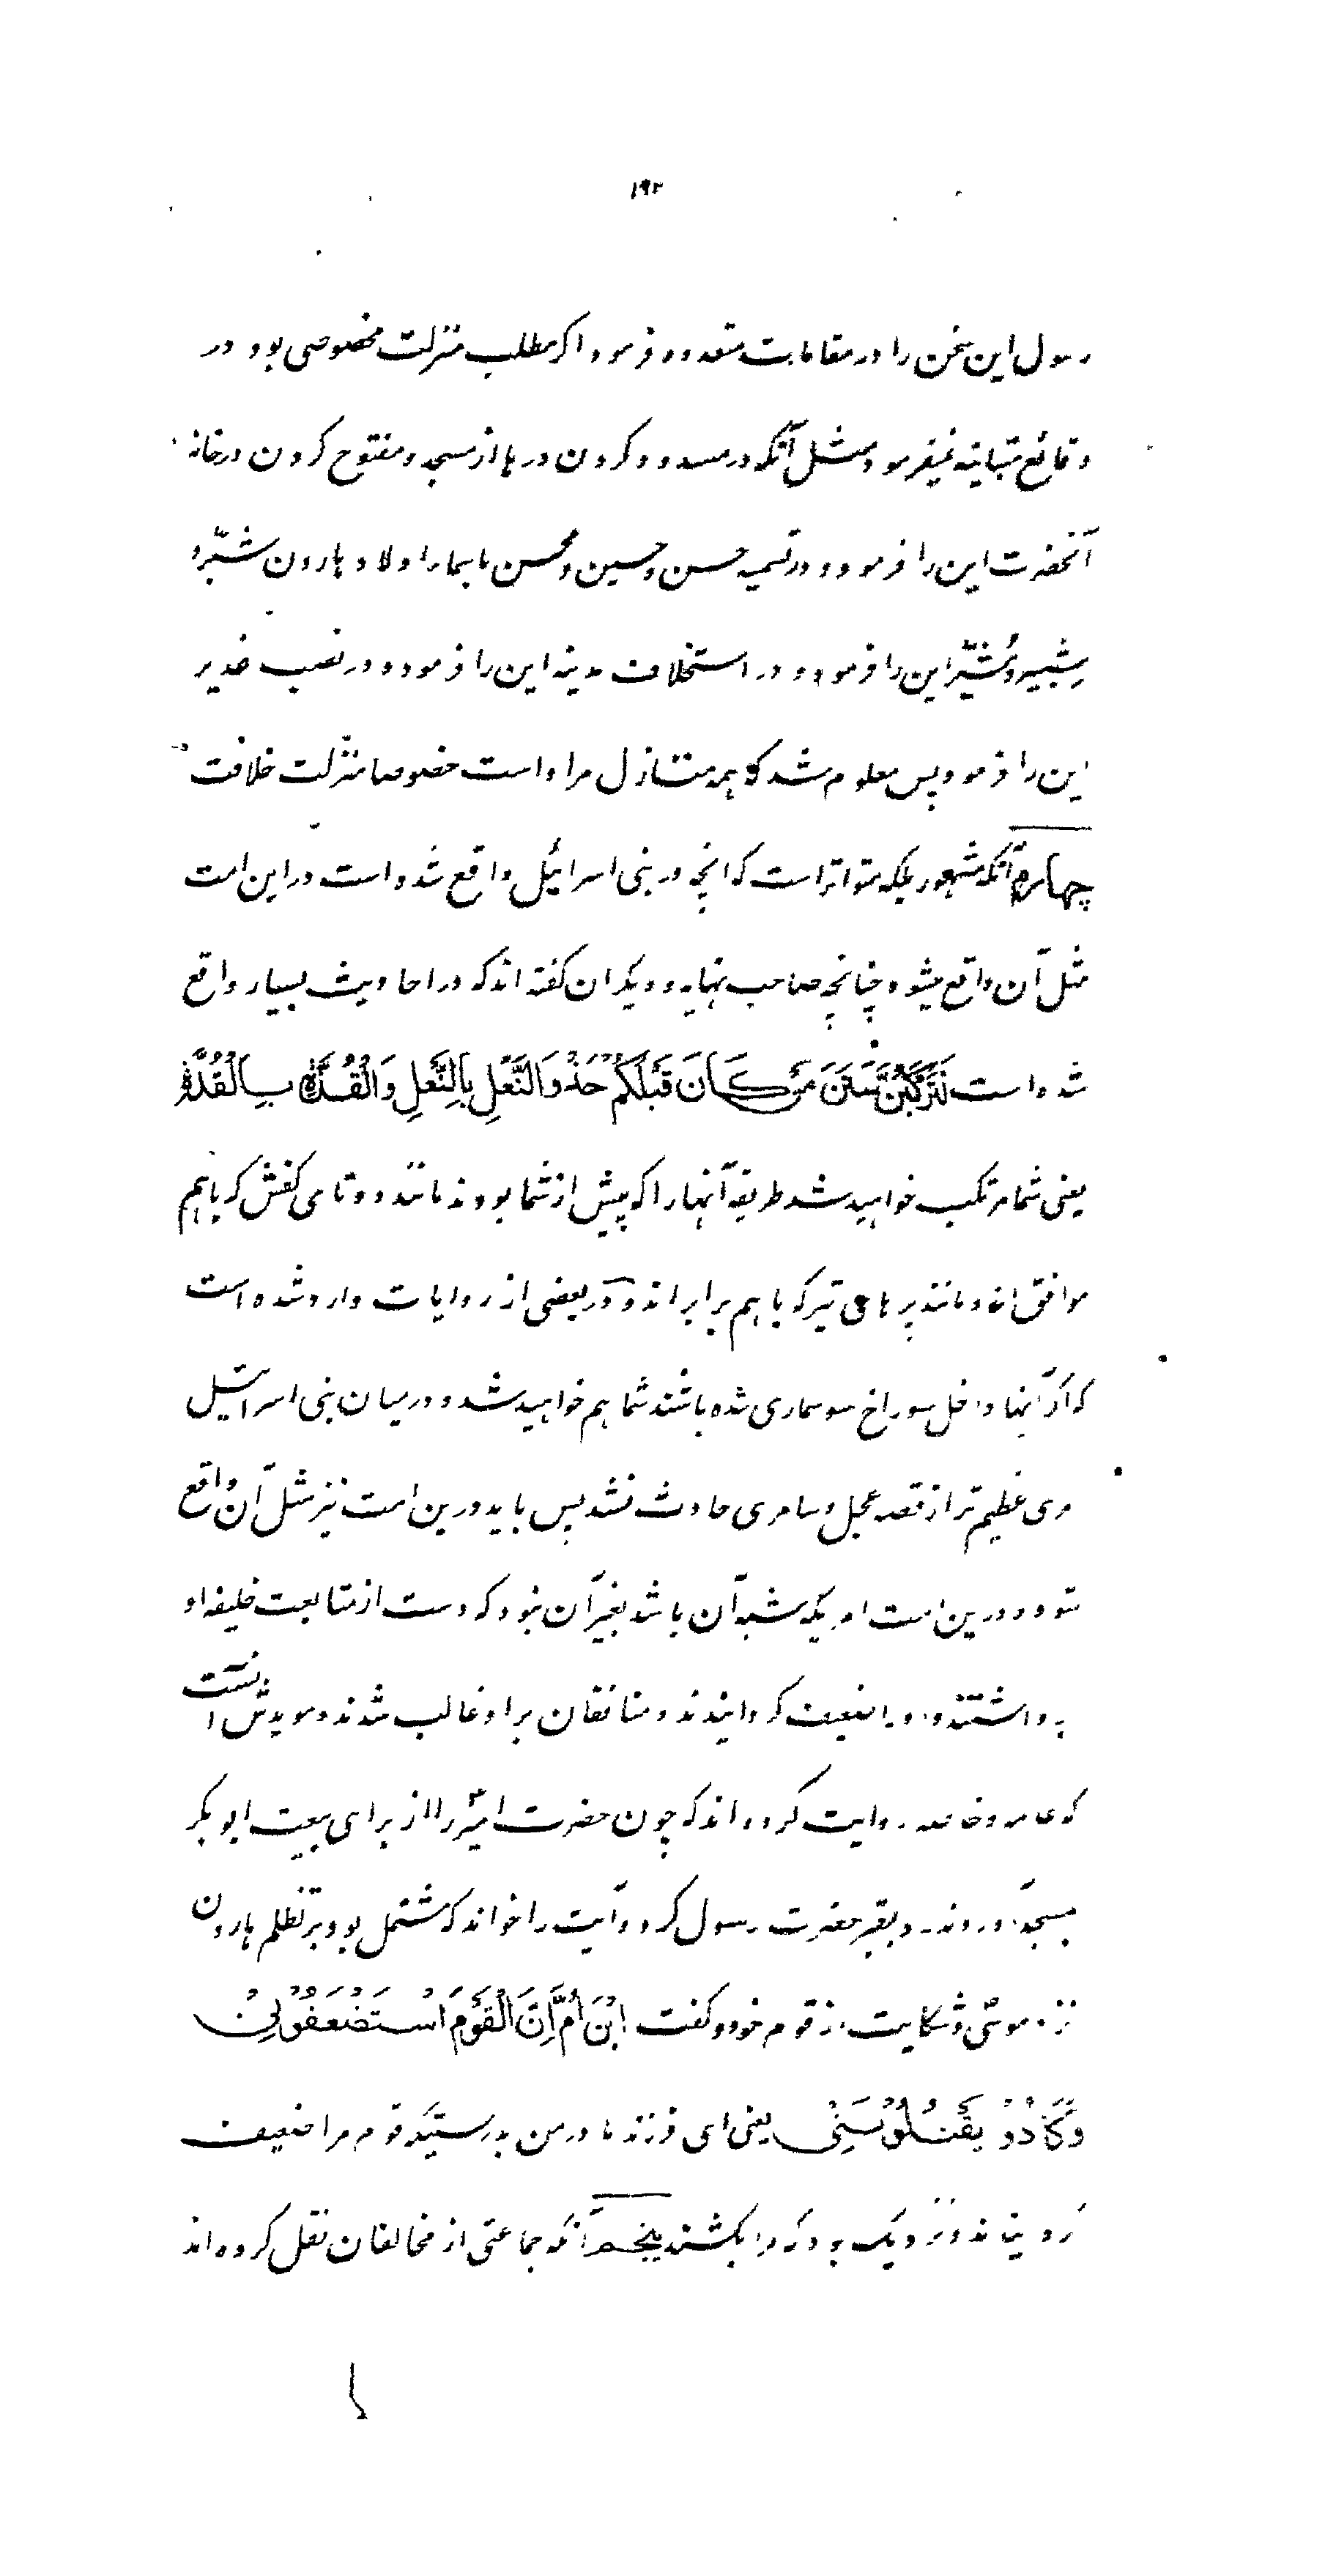 ۱۹۲
رسول این سخن را در مقامات متعدده فرمود اگر مطلب منزلت مخصوصی بود در
وقائع متباینه نمیفرمود مثل آنکه در مسدود کردن درها از مسجد و مفتوح کردن در خانه
آنحضرت این را فرمود و در تسمیه حسن و حسین و محسن باسمای اولاد هارون شبّر و
شبیر و مُشبّر این را فرمود و در استخلاف مدینه این را فرمود و در نصب غدیر
این را فرمود پس معلوم شد که همه منازل مراد است خصوصا منزلت خلافت
چهارم آنکه مشهور بلکه متواتر است که انچه در بنی اسرائیل واقع شده است در این امت
مثل آن واقع میشود چنانچه صاحب نهایه و دیکران کفته اند که در احادیث بسیار واقع
شده است لَتَرْكَبُنَّ سَنَنَ مَنْ كَانَ قَبْلَكُمْ حَذْوَ النَّعْلِ بِالنَّعْلِ وَالْقُذَّةِ بِالْقُذَّةِ
یعنی شما مرتکب خواهید شد طریقه آنها را که پیش از شما بودند مانند دو تای کفش که باهم
موافق اند و مانند پرهای تیر که با هم برابر اند و در بعضی از روایات وارد شده است
که اگر آنها داخل سوراخ سوسماری شده باشند شما هم خواهید شد و در میان بنی اسرائیل
مری عظیم تر از قصه عجل و سامری حادث نشد پس باید درین امت نیز مثل آن واقع
شود و درین امت امریکه شبیه آن باشد بغیر آن نبود که دست از متابعت خلیفه او
برداشتند و او را ضعیف کردانیدند و منافقان بر او غالب شدند و مویدش انست
که عامه و خاصه روایت کرده اند که چون حضرت امیرؑ را از برای بیعت ابوبکر
بمسجد آوردند رو بقبر حضرت رسول کرد و آیت را خواند که مشتمل بود بر تظلم هارون
نزد موسیٰ و شکایت از قوم خود و کفت ابْنَ أُمَّ إِنَّ الْقَوْمَ اسْتَضْعَفُوْنِيْ
وَكَادُوْ يَقْتُلُوْنَنِيْ یعنی ای فرزند مادر من بدرستیکه قوم مرا ضعیف
کردانیدند و نزدیک بود که مرا بکشند پنجم آنکه جماعتی از مخالفان نقل کرده اند